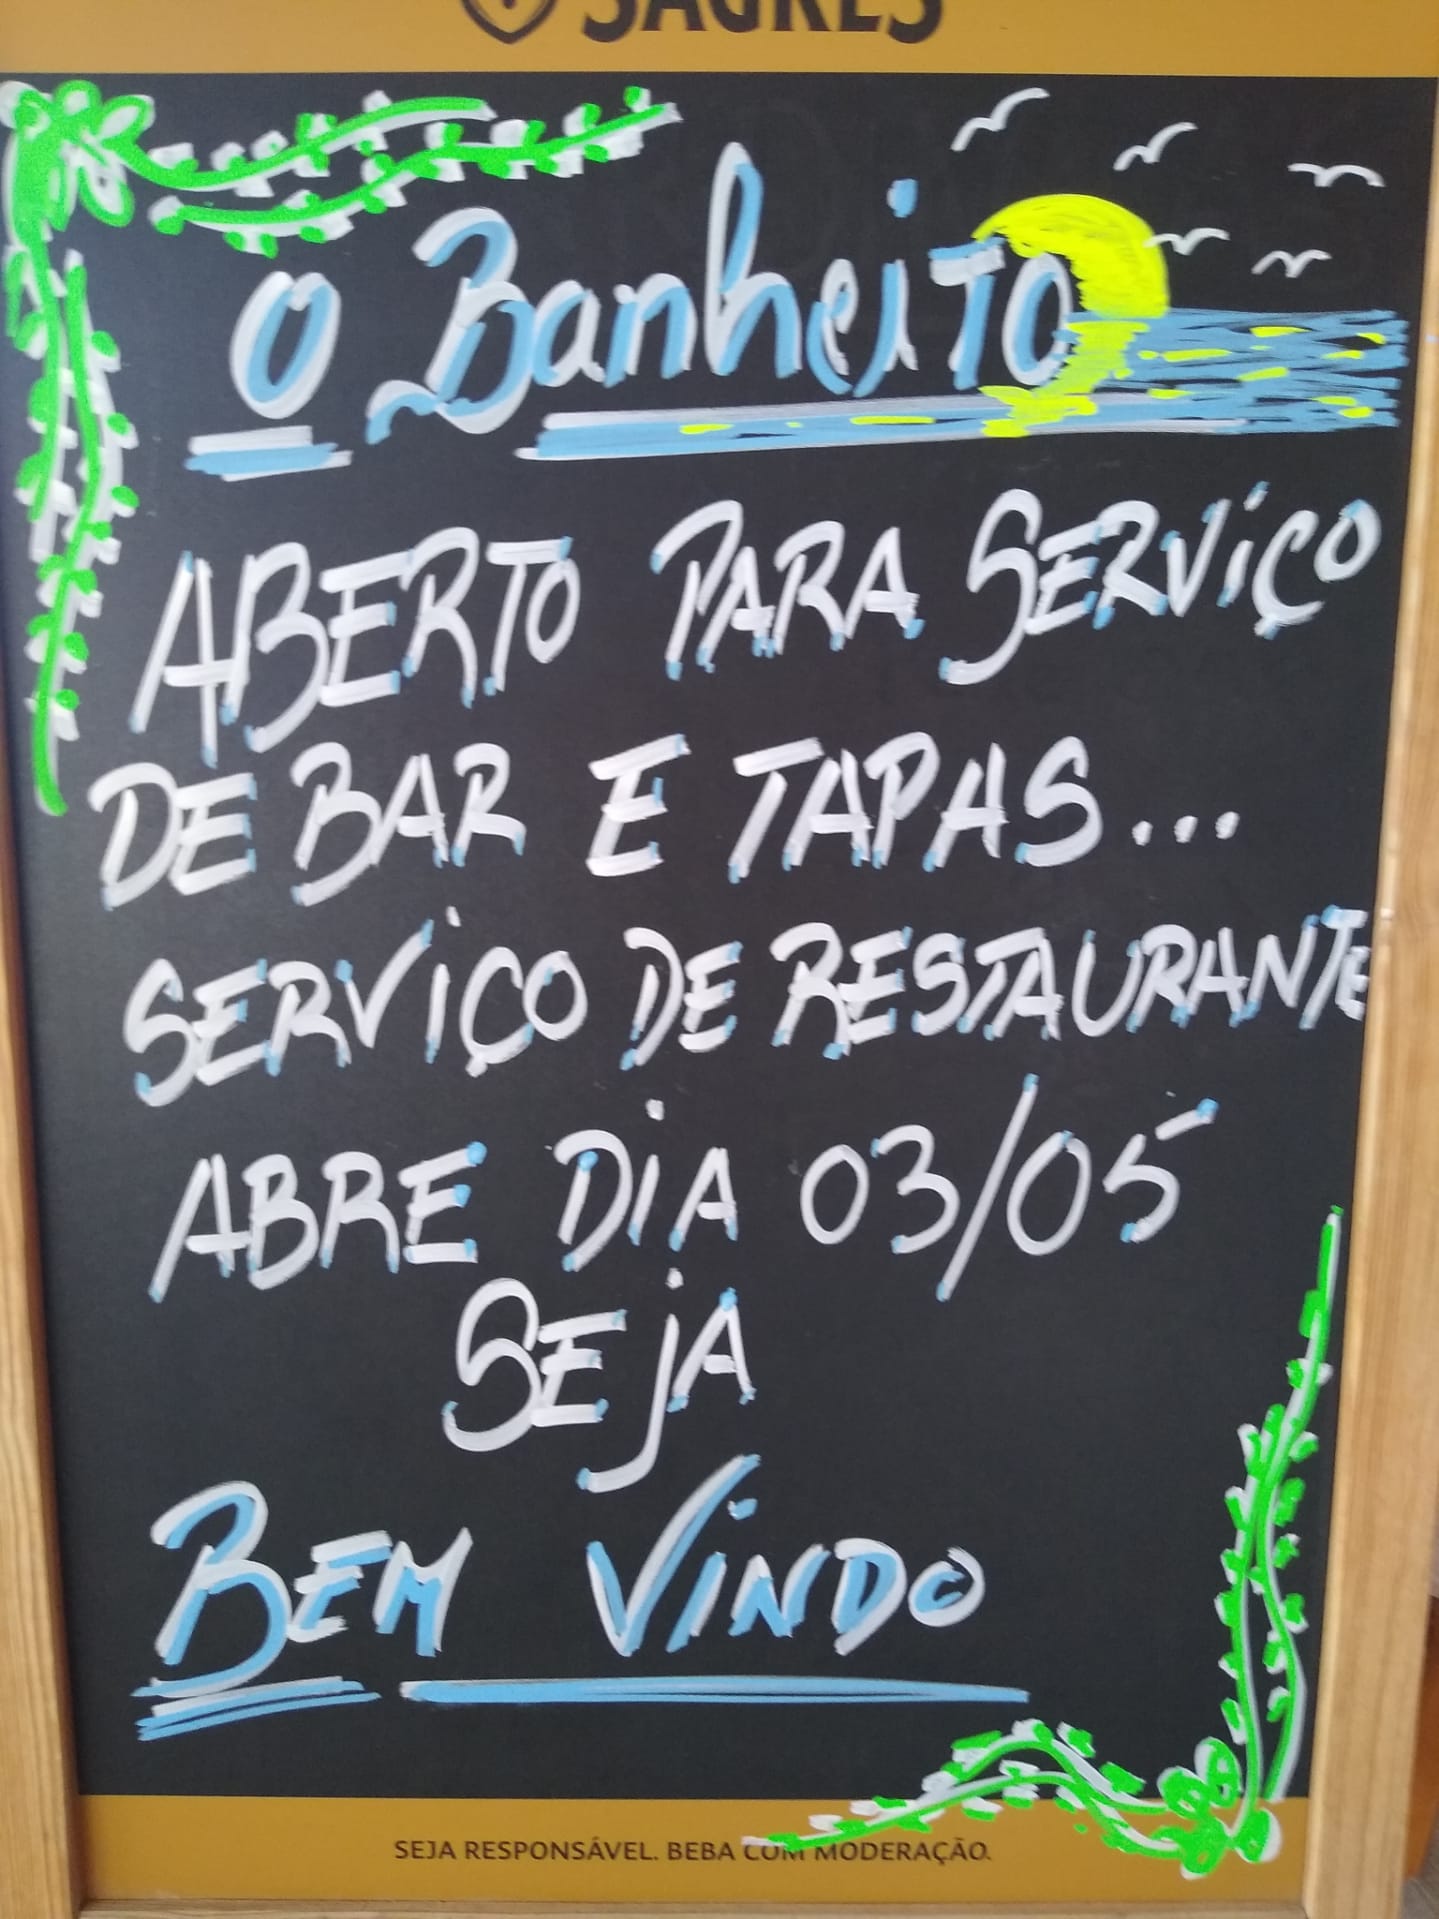 SAGRES
O Banheito
ABERTO PARA SERVIÇO
DE BAR E TAPAS...
SERVIÇO DE RESTAURANTE
ABRE DIA 03/05
SEJA
BEM VINDO
SEJA RESPONSÁVEL. BEBA COM MODERAÇÃO.